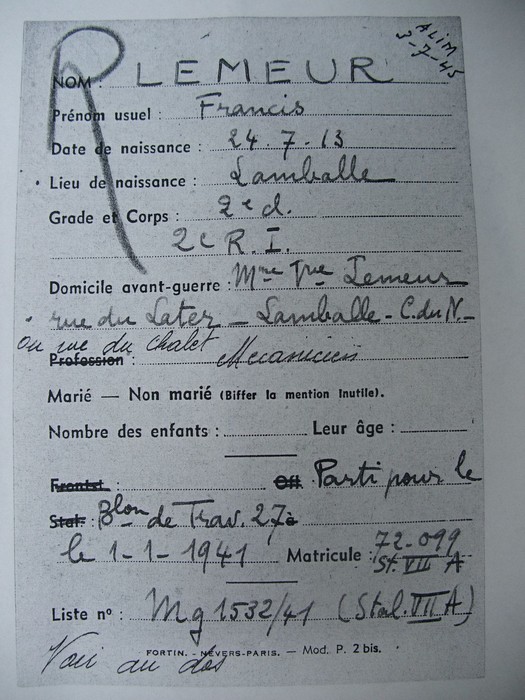 ALIM
3-7-45
R
NOM : LEMEUR
Prénom usuel : Francis
Date de naissance : 24.7.13
Lieu de naissance : Lamballe
Grade et Corps : 2e cl.
2e R.I.
Domicile avant-guerre : Mme Vve Lemeur
rue du Later — Lamballe - C.du N.-
ou rue du chalet
Profession : Mecanicien
Marié — Non marié (Biffer la mention inutile).
Nombre des enfants : Leur âge :
Frontst : Off Parti pour le
Stat : Blon de Trav. 27è
le 1-1-1941 Matricule : 72-099
St. VII A
Liste nº : Mg 1532/41 (Stal. VII A)
FORTIN. - NEVERS-PARIS. — Mod. P. 2 bis.
Voir au dos